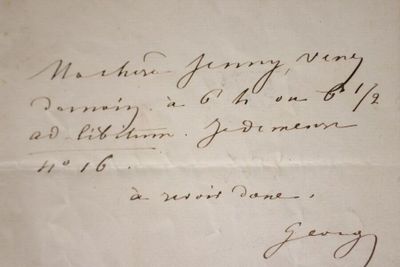 Ma chère Jenny, venez
demain à 6 h ou 6 1/2
ad libitum. Je demeure
n° 16.
à revoir donc.
George